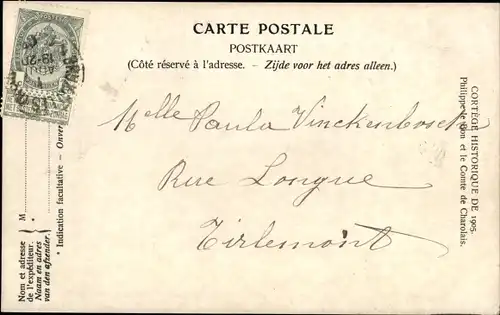 CARTE POSTALE
POSTKAART
(Côté réservé à l'adresse. - Zijde voor het adres alleen.)
Melle Paula Vinckenbosch
Rue Longue
Tirlemont
CORTÈGE HISTORIQUE DE 1905.
Philippe le Bon et le Comte de Charolais.
* Indication facultative - Onver
M
Nom et adresse
de l'expéditeur.
Naam en adres
van den afzender.